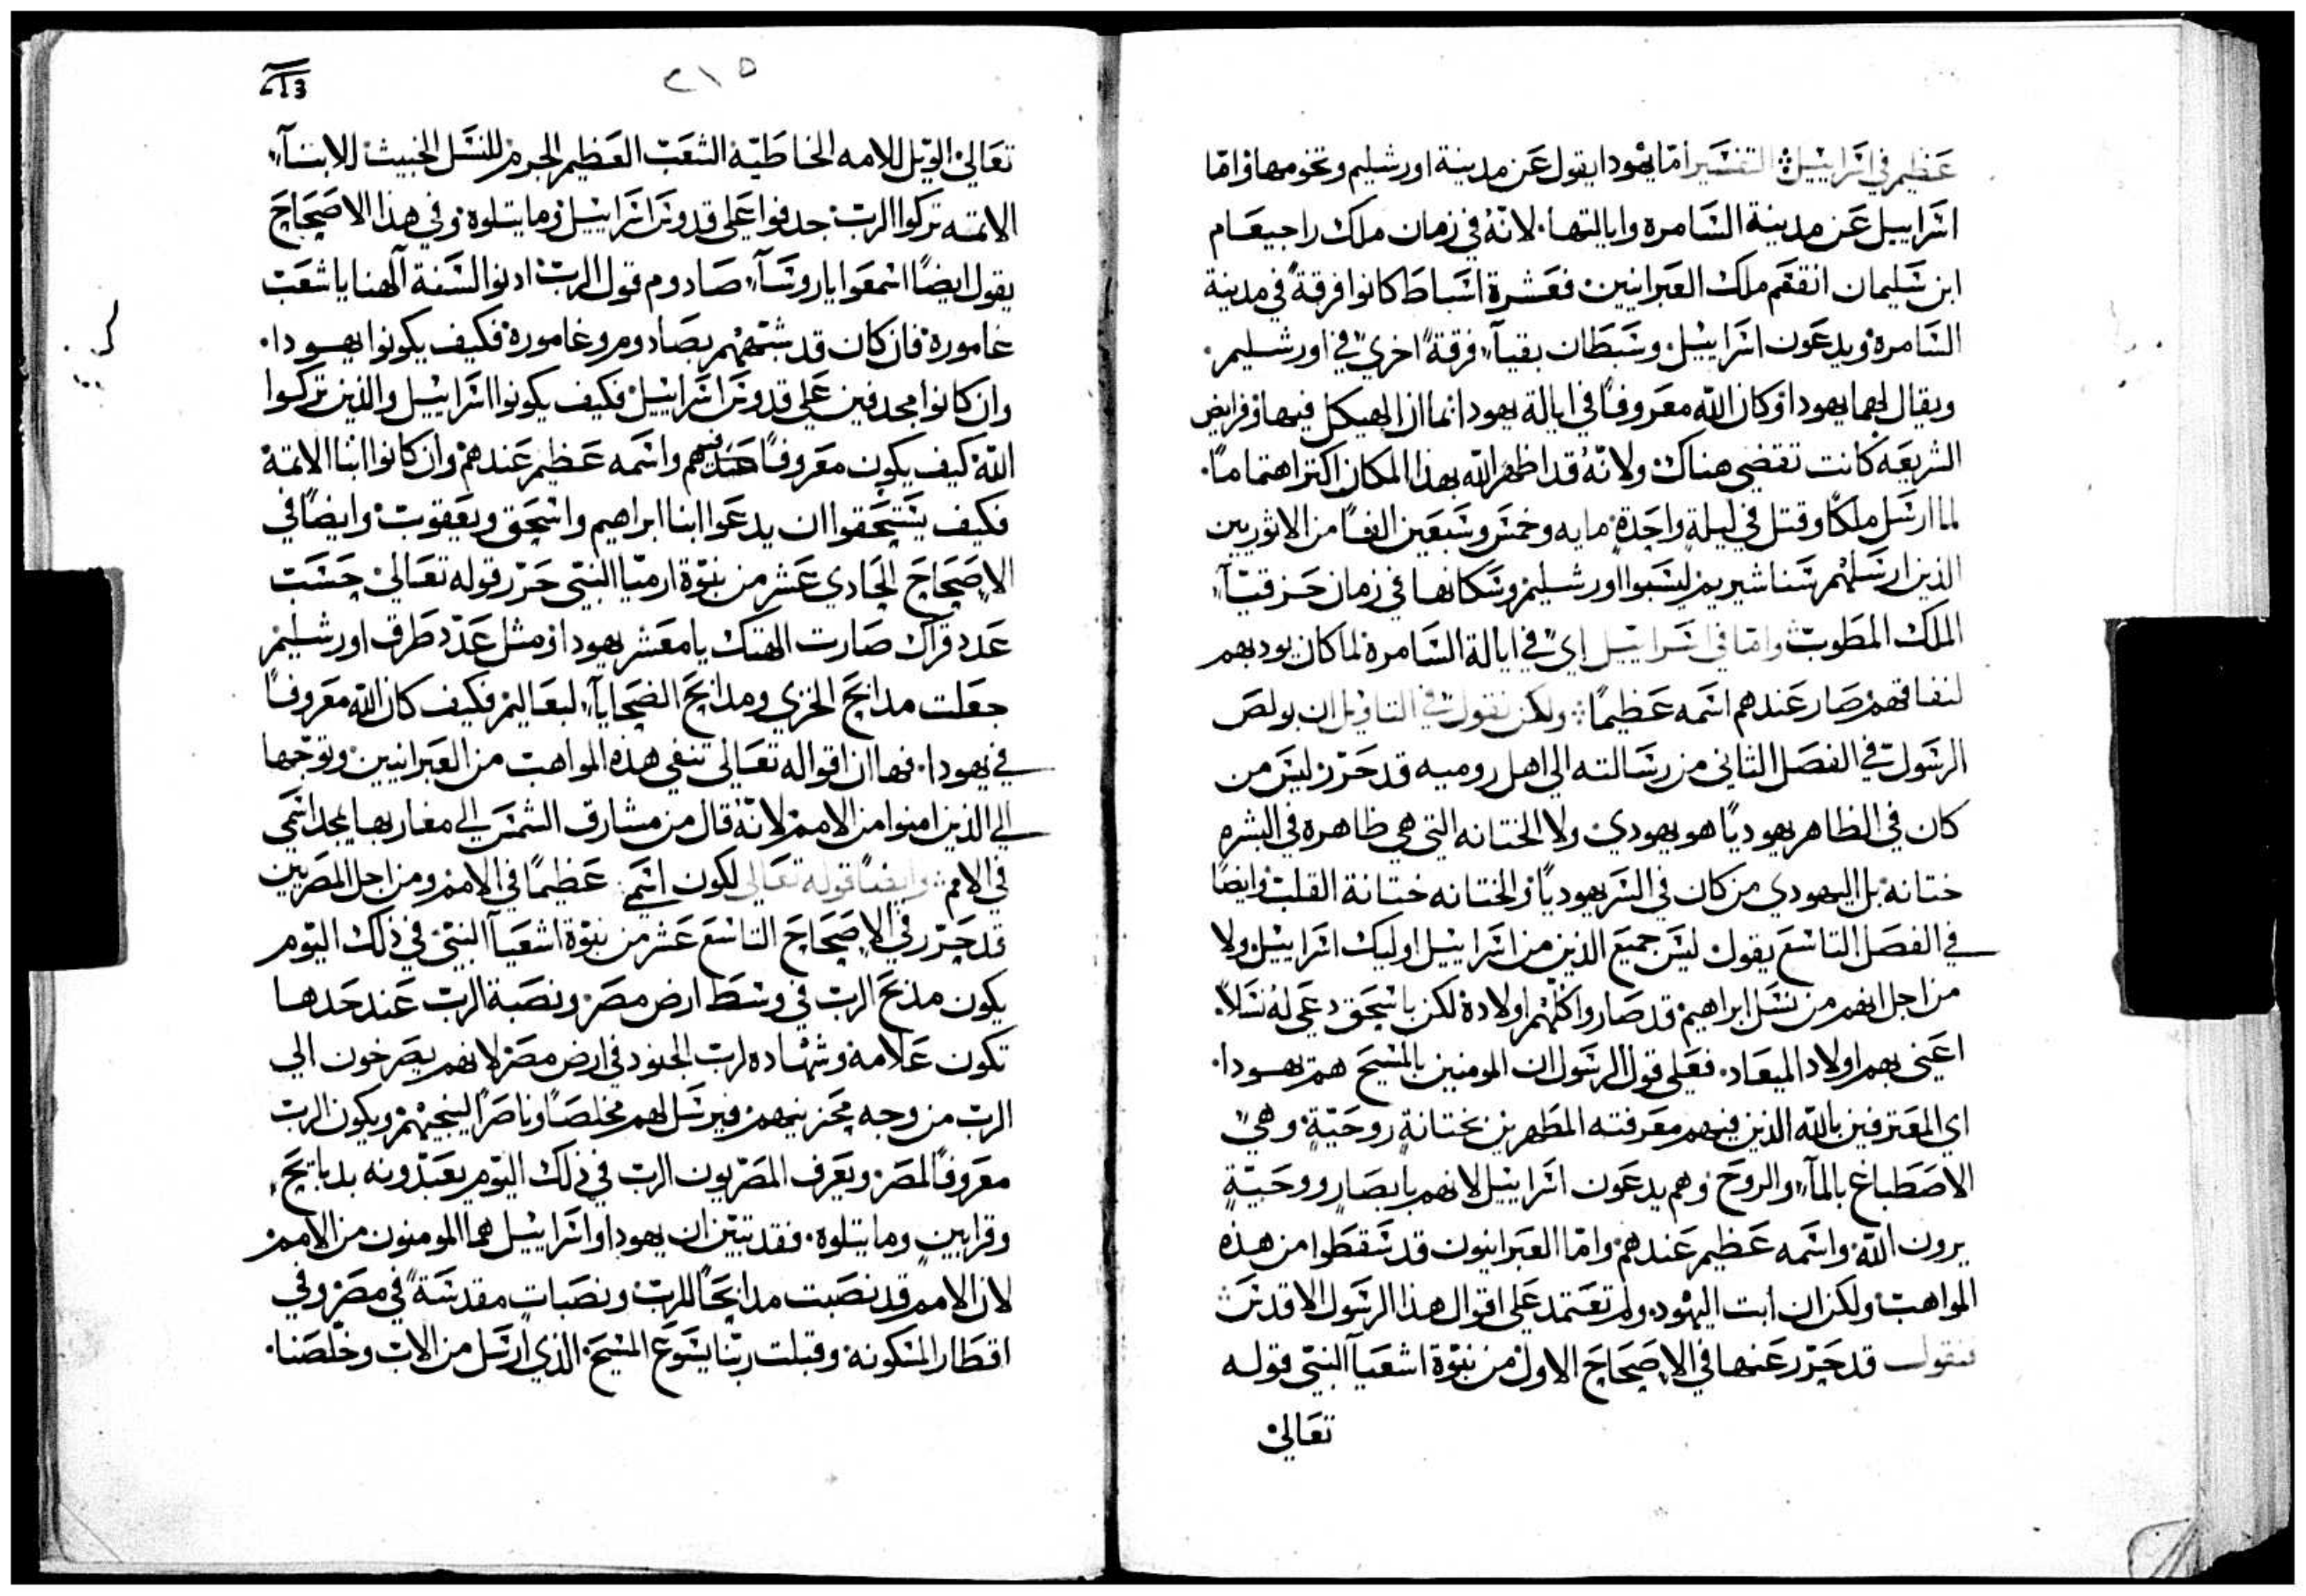 عظيم في اسراييل التفسير اما يهودا يقول عن مدينة اورشليم وتخومها واما
اسراييل عن مدينة السامره وايالتها. لانه في زمان ملك راجيعام
ابن سليمان انقسم ملك العبرانيين فعشرة اسباط كانوا فرقةً في مدينة
السامره ويدعون اسراييل وسبطان بقيآ فرقةً اخري في اورشليم.
ويقال لهما يهودا وكان الله معروفًا في ايالة يهودا انما ان الهيكل فيها وفرايض
الشريعه كانت تقضي هناك ولانهُ قد اظهر الله بهذا المكان اكتر اهتمامًا.
لما ارسل ملكًا وقتل في ليلةٍ واحدةٍ مايه وخمس وسبعين الفًا من الاثوريين
الذين ارسلهم سناشيريم ليسبوا اورشليم وسكانها في زمان حزقيآ
الملك المطوب واما في اسراييل اي في ايالة السامره لما كان يودبهم
لنفاقهم صار عندهم اسمه عظيمًا ولكن نقول في التاويل ان بولص
الرسول في الفصل الثاني من رسالته الي اهل روميه قد حرر ليس من
كان في الظاهر يهوديًا هو يهودي ولا الختانه التي هي ظاهره في البشره
ختانه بل اليهودي من كان في السر يهوديًا والختانه ختانة القلب وايضًا
في الفصل التاسع يقول ليس جميع الذين من اسراييل اوليك اسراييل ولا
من اجل انهم من نسل ابراهيم قد صاروا كلهم اولاده لكن باسحق دعي له نسلاً.
اعني بهم اولاد الميعاد. فعلي قول الرسول ان المومنين بالمسيح هم يهودا.
اي المعترفين بالله الذين فيهم معرفته المطهرين بختانةٍ روحيّةٍ وهي
الاصطباغ بالمآ والروح وهم يدعون اسراييل لانهم بابصارٍ روحيّةٍ
يرون الله واسمه عظيم عندهم واما العبرانيون قد سقطوا من هذه
المواهب ولكن ان ابت اليهود ولم تعتمد علي اقوال هذا الرسول الاقدس
فنقول قد حرر عنها في الاصحاح الاول من نبوة اشعيآ النبي قوله
تعالي
٢١٥
213
تعالي الويل للامه الخاطيّه الشعب العظيم الجرم للنسل الخبيث للابنآ
الاتمه تركوا الرب جدفوا علي قدوس اسراييل وما يتلوه وفي هذا الاصحاح
يقول ايضًا اسمعوا يا روسآ صادوم قول الرب ادنوا لسنة آلهنا يا شعب
غاموره فان كان قد شبههم بصادوم وغاموره فكيف يكونوا يهودا.
وان كانوا مجدفين علي قدوس اسراييل فكيف يكونوا اسراييل والذين تركوا
الله كيف يكون معروفًا عندهم واسمه عظيم عندهم وان كانوا ابنا الاتمه
فكيف يستحقوا ان يدعوا ابنا ابراهيم واسحق ويعقوب وايضًا في
الاصحاح الحادي عشر من نبوة ارميّا النبي حرر قوله تعالي حسب
عدد قراك صارت الهتك يا معشر يهودا ومثل عدد طرق اورشليم
جعلت مدابح الخزي ومدابح الضحايآ لبعاليم فكيف كان الله معروفًا
في يهودا. فها ان اقواله تعالي تنفي هذه المواهب من العبرانيين وتوجهها
الي الذين امنوا من الامم لانه قال من مشارق الشمس الي مغاربها يمجد اسمي
في الامم وايضًا قوله تعالي لكون اسمي عظيمًا في الامم ومن اجل المصريين
قد حرر في الاصحاح التاسع عشر من نبوة اشعيآ النبي في ذلك اليوم
يكون مذبح الرب في وسط ارض مصر ونصبة الرب عند حدها
تكون علامه وشهاده لرب الجنود في ارض مصر لانهم يصرخون الي
الرب من وجه محزنيهم فيرسل لهم مخلصًا وناصرًا لينجيهم ويكون الرب
معروفًا لمصر ويعرف المصريون الرب في ذلك اليوم يعبدونه بدبايح
وقرابين وما يتلوه. فقد تبين ان يهودا واسراييل هما المومنون من الامم
لان الامم قد نصبت مدابحًا للرب ونصبات مقدسةً في مصر وفي
اقطار المسكونه وقبلت ربنا يسوع المسيح الذي ارسل من الاب وخلصنا.